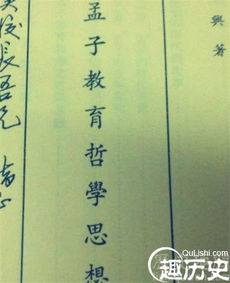 興著
孟子教育哲學思想
長吾兄
QuLishi.com
趣历史